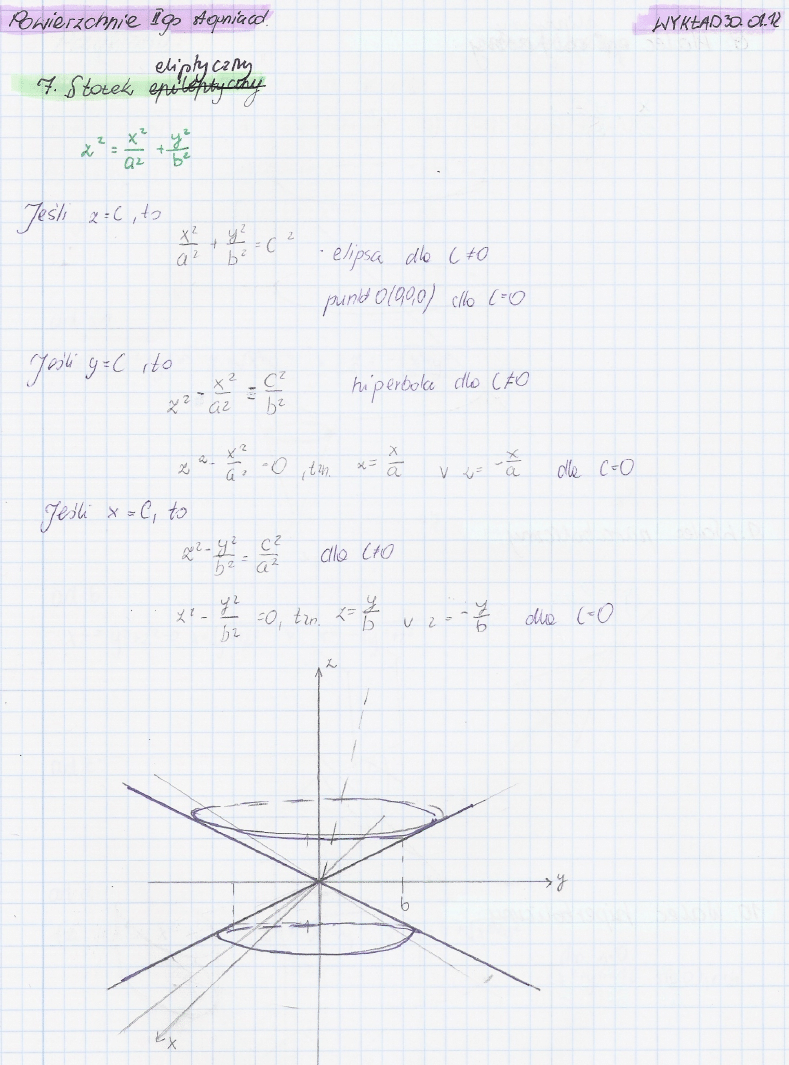 Powierzchnie IIgo stopnia cd.
WYKŁAD 30.01.12
7. Stożek eliptyczny
z² = x²/a² + y²/b²
Jeśli z=C, to
x²/a² + y²/b² = C² · elipsa dla C≠0
punkt O(0,0,0) dla C=0
Jeśli y=C, to
z² - x²/a² = C²/b² hiperbola dla C≠0
z² - x²/a² = 0, tzn. z = x/a v z = -x/a dla C=0
Jeśli x=C, to
z² - y²/b² = C²/a² dla C≠0
z² - y²/b² = 0, tzn. z = y/b v z = -y/b dla C=0
z
y
b
x